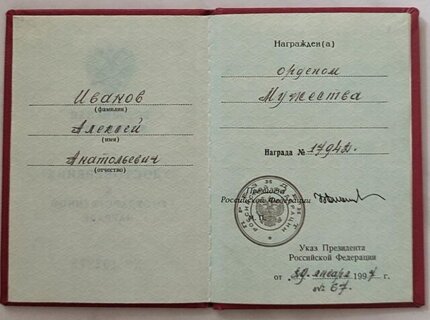 Иванов
(фамилия)
Алексей
(имя)
Анатольевич
(отчество)
Награжден(а)
орденом
Мужества
Награда №
Российской Федерации
Указ Президента
Российской Федерации
от 29 января 1997 г.
№ 67.